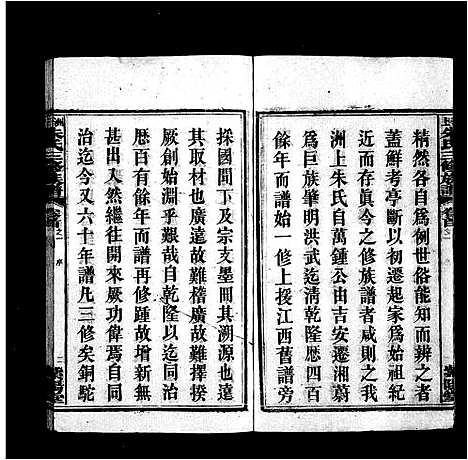 精然各自為例世俗能知而辨之者
蓋鮮考亭斷以初遷起家為始祖紀
近而詳實今之修族譜者咸則之我
洲上朱氏自萬鍾公由吉安遷湘蔚
為巨族肇明洪武迄清乾隆歷四百
餘年而譜始一修上援江西舊譜旁
採國間下及宗支墨間其溯源也遠
其取材也廣遠故難稽廣故難擇揆
厥創始淵乎艱哉自乾隆以迄同治
歷百有餘年而譜再修踵故增新無
出入然繼往開來厥功偉焉自同
治迄今又六十年譜凡三修矣銅駝
洲上朱氏三修族譜
卷首之一
序
二
紫陽堂